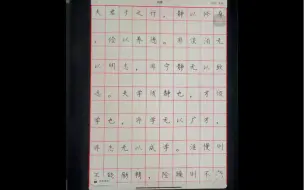 夫君子之行，静以修身
，俭以养德。非淡泊无
以明志，非宁静无以致
远。夫学须静也，才须
学也，非学无以广才，
非志无以成学。淫慢则
不能励精，险躁则不